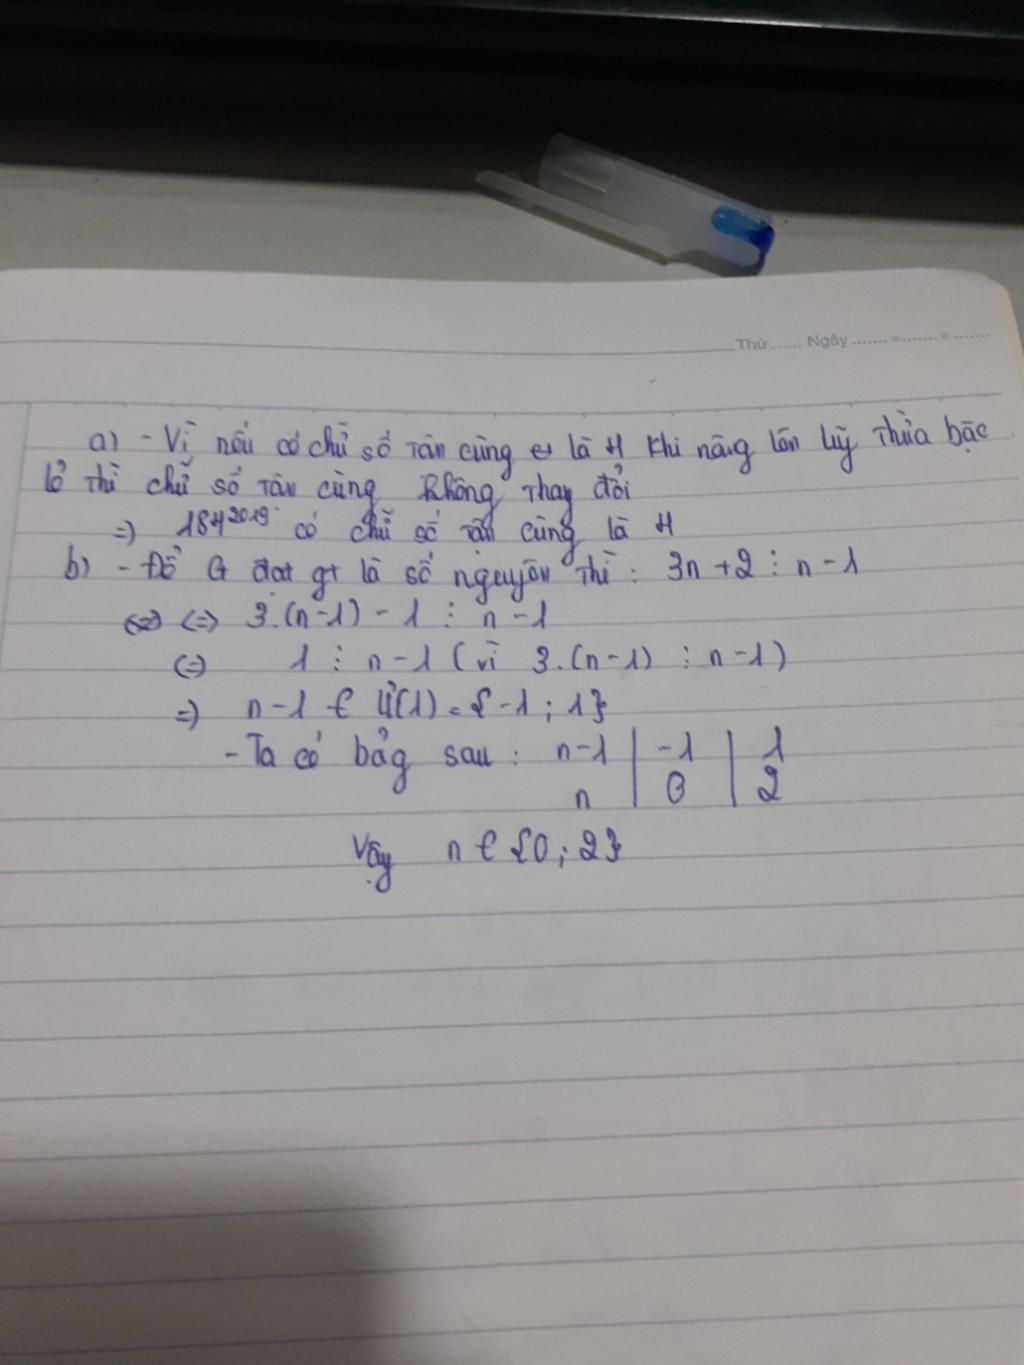 Thứ....... Ngày .......o.......o.......
a) - Vì nếu có chữ số tân cùng là 4 khi nâng lên lũy thừa bậc
lẻ thì chữ số tân cùng không thay đổi
=) 184²⁰¹⁹ có chữ số tân cùng là 4
b) - Để G đạt gt là số nguyên thì : 3n + 2 ⋮ n - 1
<=> 3.(n-1) - 1 ⋮ n - 1
(=) 1 ⋮ n - 1 (vì 3.(n-1) ⋮ n-1)
=) n-1 ∈ Ư(1) = {-1 ; 1}
- Ta có bảg sau : n-1 | -1 | 1
n | 0 | 2
Vậy n ∈ {0 ; 2}